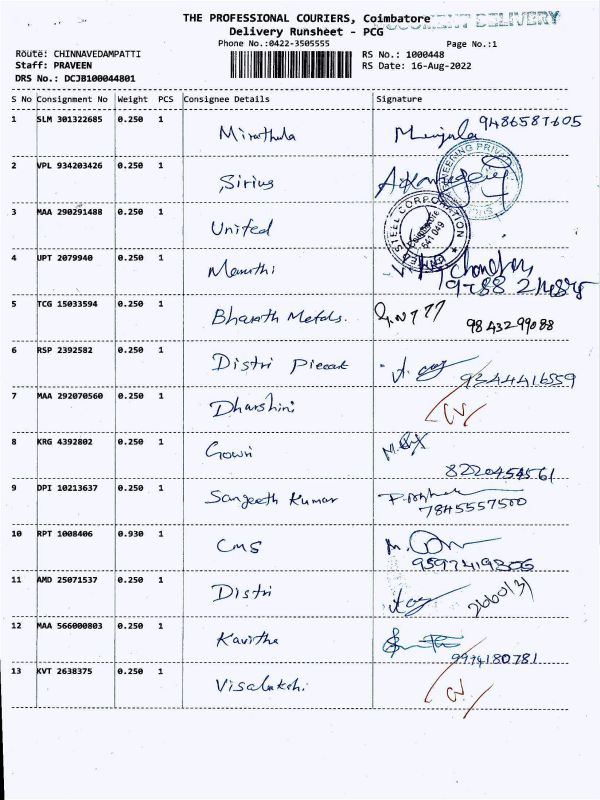 THE PROFESSIONAL COURIERS, Coimbatore
DOCUMENT DELIVERY
Delivery Runsheet - PCG
Phone No.:0422-3505555
Page No.:1
Route: CHINNAVEDAMPATTI
RS No.: 1000448
Staff: PRAVEEN
RS Date: 16-Aug-2022
DRS No.: DCJB100044801
S No Consignment No Weight PCS Consignee Details Signature
1 SLM 301322685 0.250 1 Mirathula Manjula 9486587605
2 VPL 934203426 0.250 1 Sirius
3 MAA 290291488 0.250 1 United
STEEL CORPORATION
Coimbatore
641 049
4 UPT 2079940 0.250 1 Maruthi
5 TCG 15033594 0.250 1 Bharath Metals. 9843299088
6 RSP 2392582 0.250 1 Distri Piecark 9344416559
7 MAA 292070560 0.250 1 Dharshini CV
8 KRG 4392802 0.250 1 Gowri
8220454561
9 DPI 10213637 0.250 1 Sangeeth Kumar
7845557500
10 RPT 1008406 0.930 1 CMS
9597419306
11 AMD 25071537 0.250 1 Distri 2660131
12 MAA 566000803 0.250 1 Kavitha
9994180781
13 KVT 2638375 0.250 1 Visalakshi CV